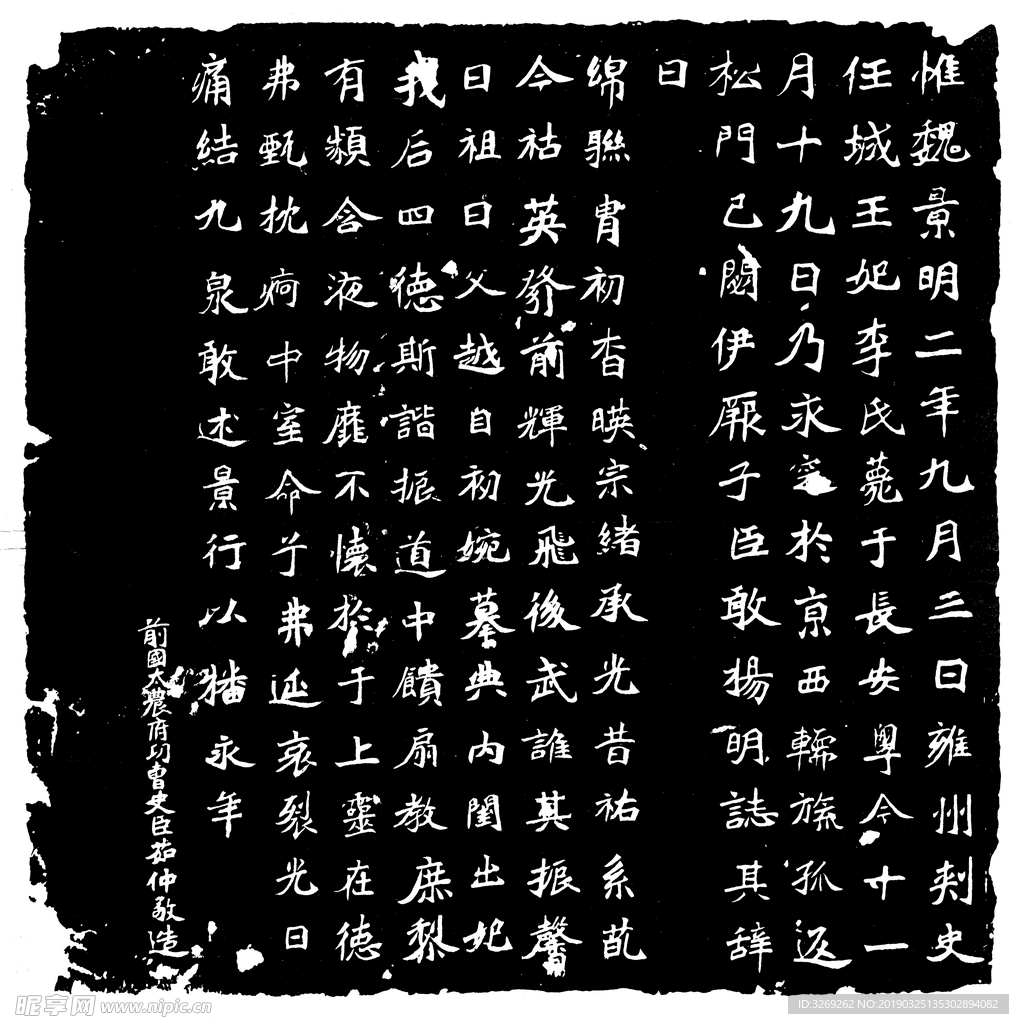 惟魏景明二年九月三日雍州刾史
任城王妃李氏薨于長安粤今十一
月十九日乃永窆於京西轜旐孤返
松門已闋伊厥子臣敢揚明誌其辞
曰
綿聯胄初杳暎宗緒承光昔祐系
今祜英發前輝光飛後武誰其振馨
曰祖曰父越自初婉墓典内闈出妃
我后四德斯諧振道中饋扇教庶黎
有頻含液物靡不懷於于上靈在德
弗甄枕痾中室命兮弗延哀裂光日
痛結九泉敢述景行以播永年
前國大農府功曹史臣茹仲敬造
昵享网 www.nipic.cn
ID:3269262 NO:20190325135302894082